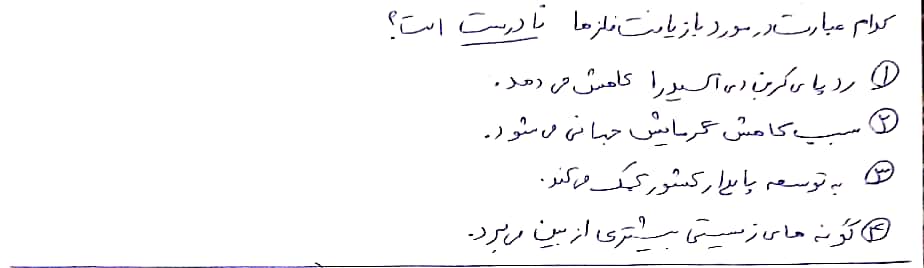 کدام عبارت در مورد بازیافت فلزها نادرست است؟
① رد پای کربن دی اکسید را کاهش می دهد.
② سبب کاهش گرمایش جهانی می شود.
③ به توسعه پایدار کشور کمک می کند.
④ گونه های زیستی بیشتری از بین می برد.